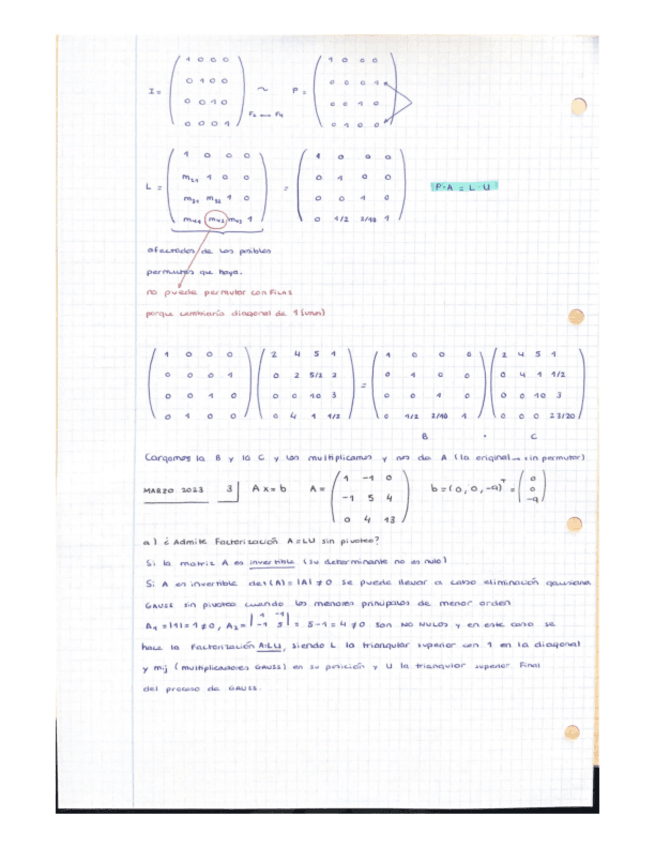 I = ( 1 0 0 0 / 0 1 0 0 / 0 0 1 0 / 0 0 0 1 ) ~ F2 ↔ F4 P = ( 1 0 0 0 / 0 0 0 1 / 0 0 1 0 / 0 1 0 0 )
L = ( 1 0 0 0 / m21 1 0 0 / m31 m32 1 0 / m41 m42 m43 1 ) = ( 1 0 0 0 / 0 1 0 0 / 0 0 1 0 / 0 1/2 2/10 1 ) P·A = L·U
afectados de los posibles
permutes que haya.
no puede permutar con filas
porque cambiaría diagonal de 1 (unos)
( 1 0 0 0 / 0 0 0 1 / 0 0 1 0 / 0 1 0 0 ) ( 2 4 5 1 / 0 2 5/2 2 / 0 0 10 3 / 0 4 1 1/2 ) = ( 1 0 0 0 / 0 1 0 0 / 0 0 1 0 / 0 1/2 2/10 1 ) ( 2 4 5 1 / 0 4 1 1/2 / 0 0 10 3 / 0 0 0 23/20 )
B · C
Cargamos la B y la C y las multiplicamos y nos da A (la original → sin permutar)
MARZO 2023 3 Ax = b A = ( 1 -1 0 / -1 5 4 / 0 4 13 ) b = (0, 0, -9)T = ( 0 / 0 / -9 )
a) ¿ Admite Factorización A=LU sin pivoteo?
Si la matriz A es invertible (su determinante no es nulo)
Si A es invertible det(A) = |A| ≠ 0 se puede llevar a cabo eliminación gaussiana
GAUSS sin pivoteo cuando los menores principales de menor orden
A1 = |1| = 1 ≠ 0, A2 = | 1 -1 / -1 5 | = 5-1 = 4 ≠ 0 son NO NULOS y en este caso se
hace la Factorización A=LU, siendo L la triangular superior con 1 en la diagonal
y mij (multiplicadores GAUSS) en su posición y U la triangular superior final
del proceso de GAUSS.